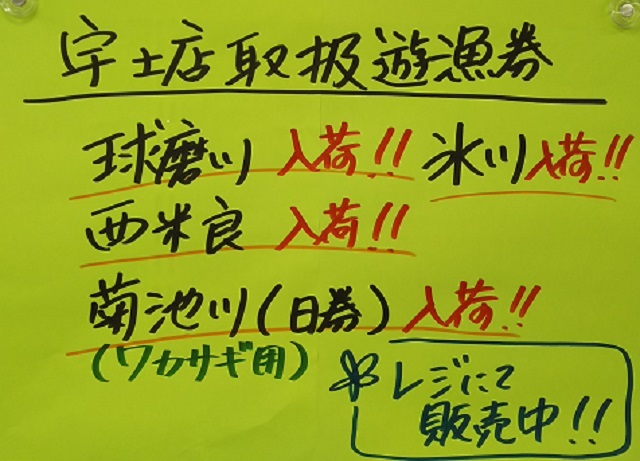 宇土店取扱遊漁券
球磨川 入荷!! 氷川入荷!!
西米良 入荷!!
菊池川(日券) 入荷!!
(ワカサギ用)
レジにて
販売中!!